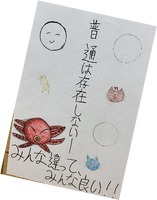 普通は存在しないー
みんな違って、
みんな良い!!